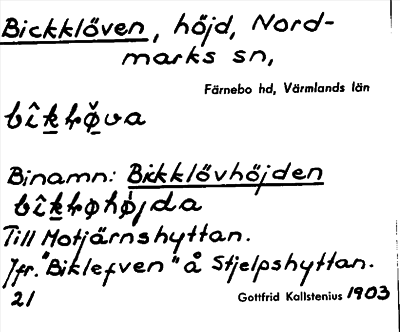 Bickklöven, höjd, Nord-
marks sn,
Färnebo hd, Värmlands län
Binamn: Bickklövhöjden
Till Motjärnshyttan.
Jfr. "Biklefven" å Stjelpshyttan.
21 Gottfrid Kallstenius 1903